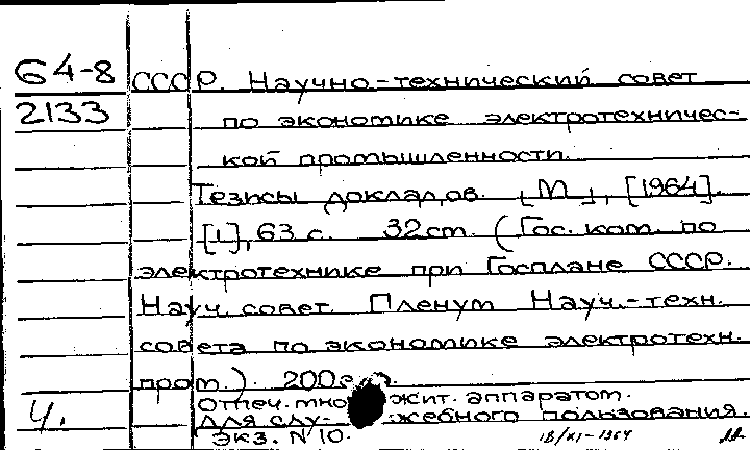 64-8 СССР. Научно-технический совет
2133 по экономике электротехничес-
кой промышленности.
Тезисы докладов. [М], [1964].
[1], 63 с. 32 ст. (Гос. ком. по
электротехнике при Госплане СССР.
Науч. совет. Пленум Науч.-техн.
совета по экономике электротехн.
пром.). 200
Отпеч. множит. аппаратом.
Ч. Для служебного пользования.
Экз. N 10. 18/XI-1964